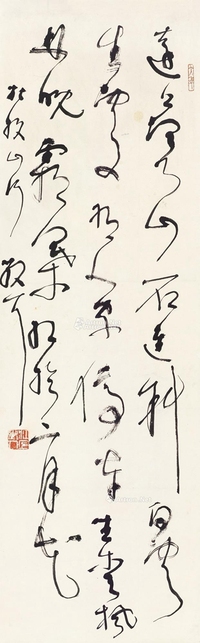 遠上寒山石逕斜白雲
生處有人家停車坐愛楓
林晚霜葉紅於二月花
杜牧山行 散耳